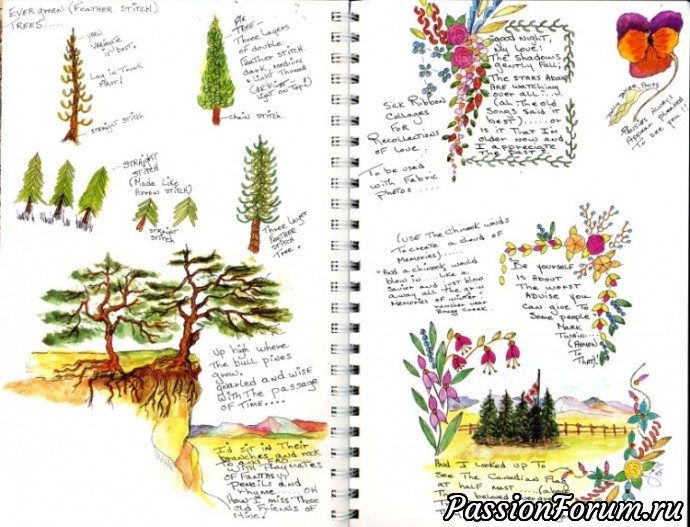 EVERgreen (FEATHER STITCH)
TREES.....
YARN
VARIEGATE
IS best.
Lay in Trunk
First!
STRAIGHT STITCH
FIR
TREE...
Three Layers
of double
Feather STITCH.
dark, medium
Light Thread
Light on Top!)
CHAIN STITCH
STRAIGHT
STITCH
(Made Like
Arrow STITCH)
STRAIGHT
STITCH
Three Layer
FEATHER
STITCH
Tree.
Up high where
the bull pines
grow.
gnarled and wise
with the passage
of Time....
I'd sit in Their
branches and rock
to and FRO....
with PLAYMATES
OF FANTASY
Pencils and
rhyme.... OH
How I miss Those
Old Friends of
Mine.
Silk Ribbon
Collages
For
Recollections
of Love.
To be used
with Fabric
Photos ....
Good Night,
My Love:
The Shadows
gently Fall;
The STARS Above
ARE watching
over all....
(ah The old
Songs said it
best)..... or
is it That I'm
older now and
I appreciate
The Past?
Pansies Always
Appear pleased
To see you!!
(Use The Chinook winds
To create a cloud of
Memories).....
"And a chinook would
blow in.... Like a
Savior and just blow
away all The grim
Memories of winter"
rancher near
Bragg Creek.
"Be yourself"
is About
The worst
Advise you
can give to
Some people.
Mark
Twain..
(Amen
To
That)!
And I Looked up To
See The Canadian Flag
at half mast.....
beloved evergreens
PassionForum.ru